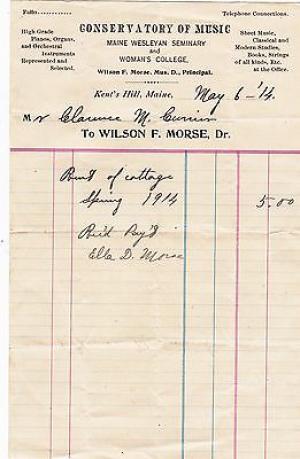 Folio
Telephone Connections.
CONSERVATORY OF MUSIC
MAINE WESLEYAN SEMINARY
AND
WOMAN'S COLLEGE,
Wilson F. Morse, Mus. D., Principal.
High Grade
Pianos, Organs,
and Orchestral
Instruments
Represented and
Selected.
Sheet Music,
Classical and
Modern Studies,
Books, Strings
of all kinds, Etc.
at the Office.
Kent's Hill, Maine, May 6 - '14.
Mr Clarence M.
To WILSON F. MORSE, Dr.
Rent of cottage
Spring 1914 5.00
Rec'd Pay't
Ella D. Morse